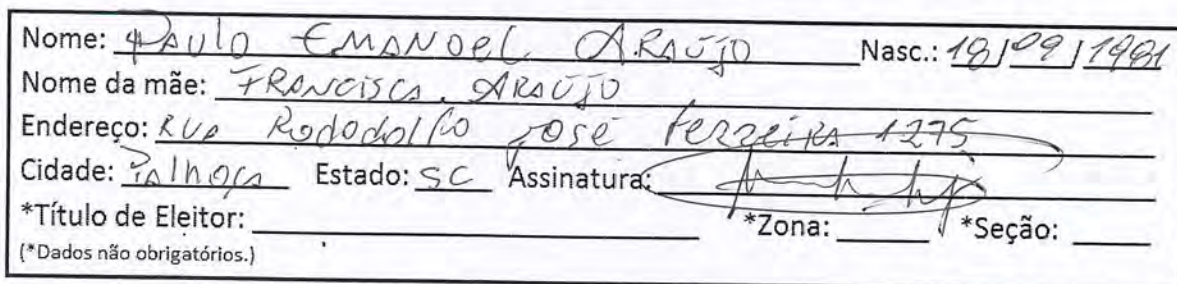 Nome: PAULO EMANOEL ARAÚJO Nasc.: 18/09/1981
Nome da mãe: FRANCISCA ARAÚJO
Endereço: RUA Rododolfo JOSÉ ferreira 1275
Cidade: Palhoça Estado: SC Assinatura:
*Título de Eleitor: *Zona: *Seção:
(*Dados não obrigatórios.)